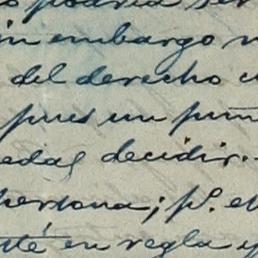 podría ser
in embargo
del derecho
pues un pun
edas decidir.
persona; pº. e
té en regla y